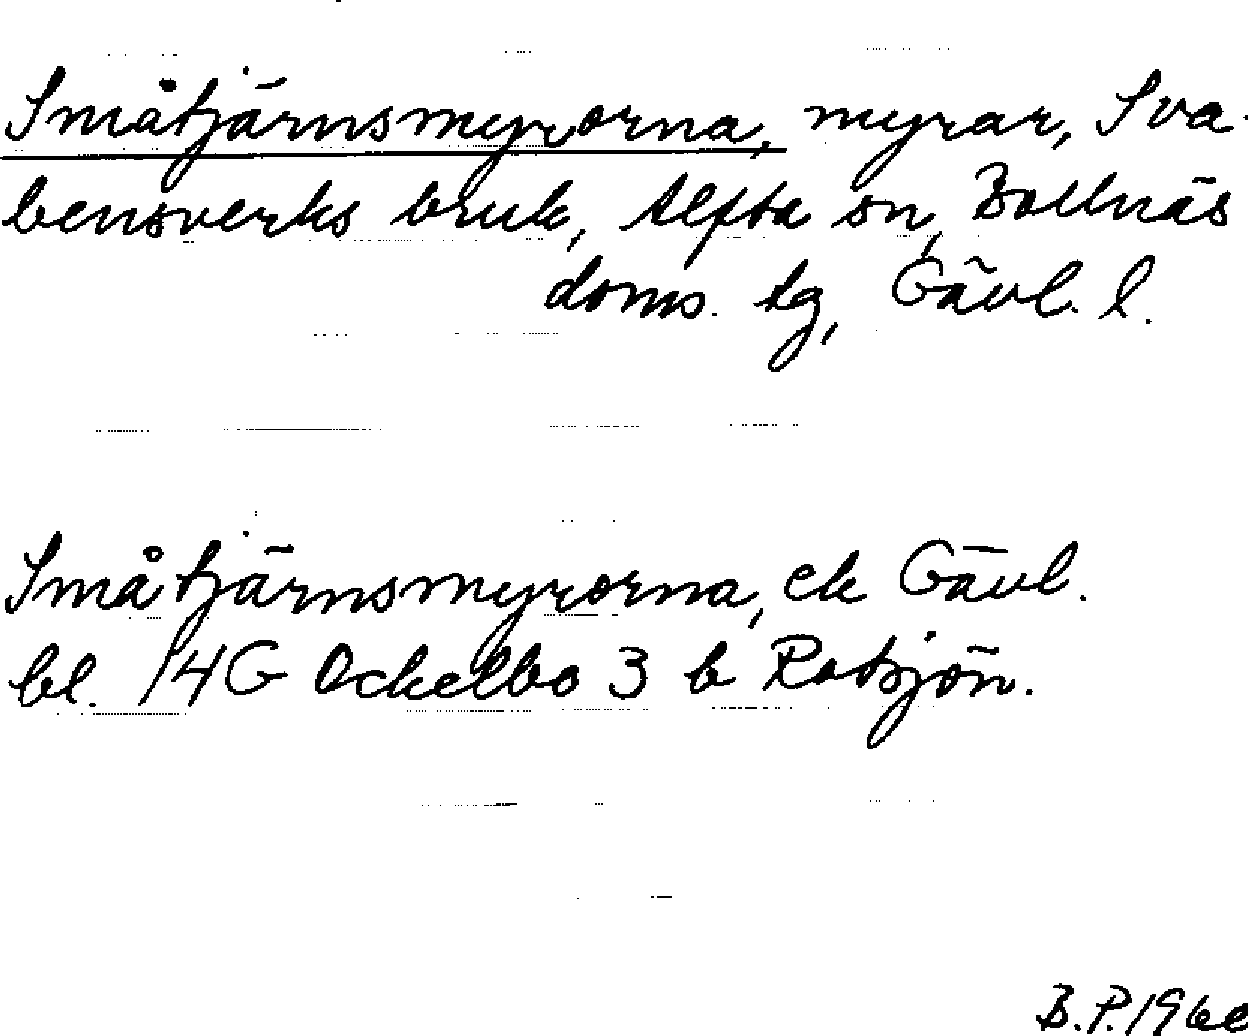 Småtjärnsmyrorna, myrar, Sva-
bensverks bruk, Alfta sn, Bollnäs
doms. tg, Gävl. l.
Småtjärnsmyrorna, ek Gävl.
bl. 14G Ockelbo 3 b Rotsjön.
B.P. 1960